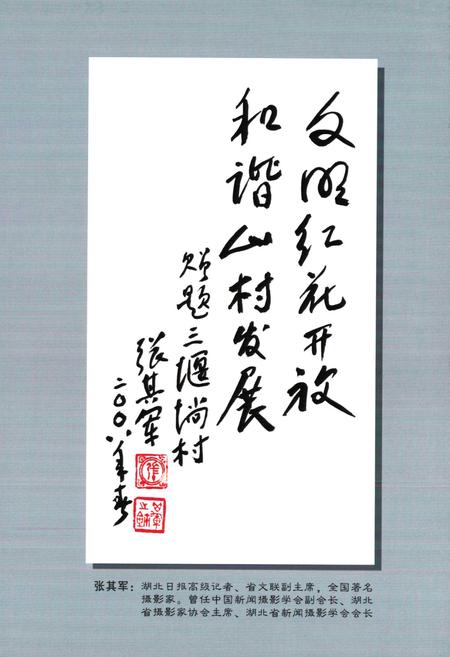 文明红花开放
和谐山村发展
赠题三堰塆村
张其军
二〇〇八年春
张其军：湖北日报高级记者、省文联副主席，全国著名
摄影家。曾任中国新闻摄影学会副会长、湖北
省摄影家协会主席、湖北省新闻摄影学会会长